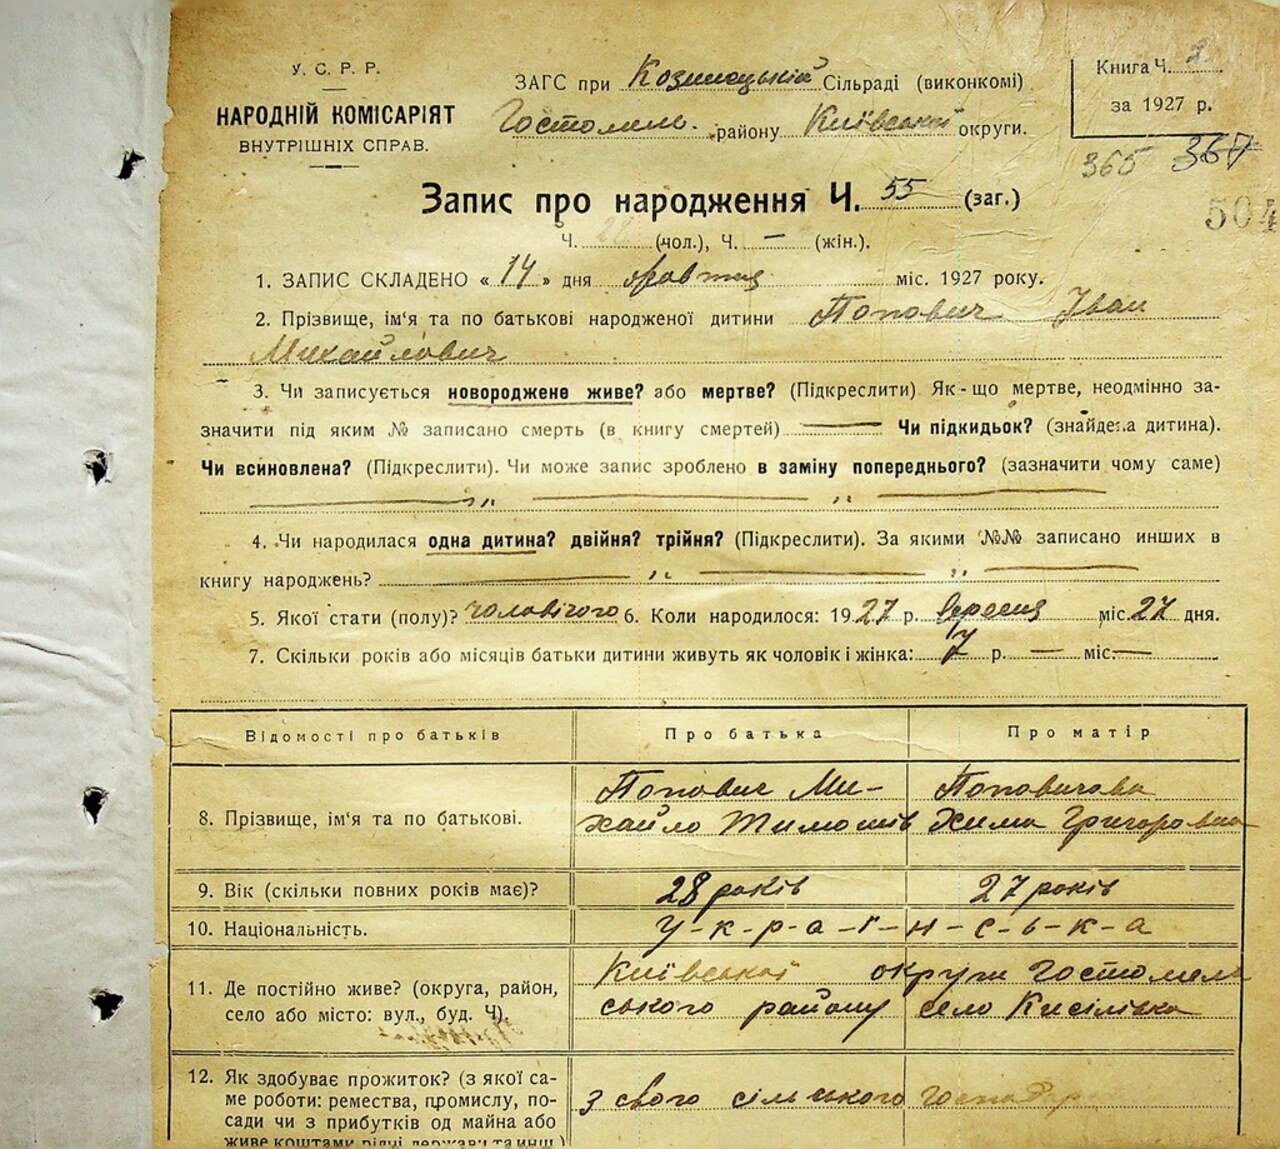 У. С. Р. Р.
НАРОДНІЙ КОМІСАРІЯТ
ВНУТРІШНІХ СПРАВ.
ЗАГС при Козинецькій Сільраді (виконкомі)
Гостомель. району Київської округи.
Книга Ч. 2
за 1927 р.
365 367
504
Запис про народження Ч. 55 (заг.)
Ч. (чол.), Ч. — (жін.).
1. ЗАПИС СКЛАДЕНО « 14 » дня жовтня міс. 1927 року.
2. Прізвище, ім'я та по батькові народженої дитини Попович Іван
Михайлович
3. Чи записується новороджене живе? або мертве? (Підкреслити) Як-що мертве, неодмінно за-
значити під яким № записано смерть (в книгу смертей) — Чи підкидьок? (знайдена дитина).
Чи всиновлена? (Підкреслити). Чи може запис зроблено в заміну попереднього? (зазначити чому саме)
— „ — „ —
4. Чи народилася одна дитина? двійня? трійня? (Підкреслити). За якими №№ записано инших в
книгу народжень? — „ — „ —
5. Якої стати (полу)? чоловічого 6. Коли народилося: 1927 р. вересня міс. 27 дня.
7. Скільки років або місяців батьки дитини живуть як чоловік і жінка: 7 р. — міс. —
Відомості про батьків Про батька Про матір
8. Прізвище, ім'я та по батькові.
Попович Ми-
хайло Тимошів
Поповичова
Хима Григоровна
9. Вік (скільки повних років має)? 28 років 27 років
10. Національність. У-к-р-а-ї-н-с-ь-к-а
11. Де постійно живе? (округа, район,
село або місто: вул., буд. Ч).
Київської округи Гостомель
ського району село Кисілівка
12. Як здобуває прожиток? (з якої са-
ме роботи: ремества, промислу, по-
сади чи з прибутків од майна або
живе коштами рідні, держави та инш.)
З свого сільського господар